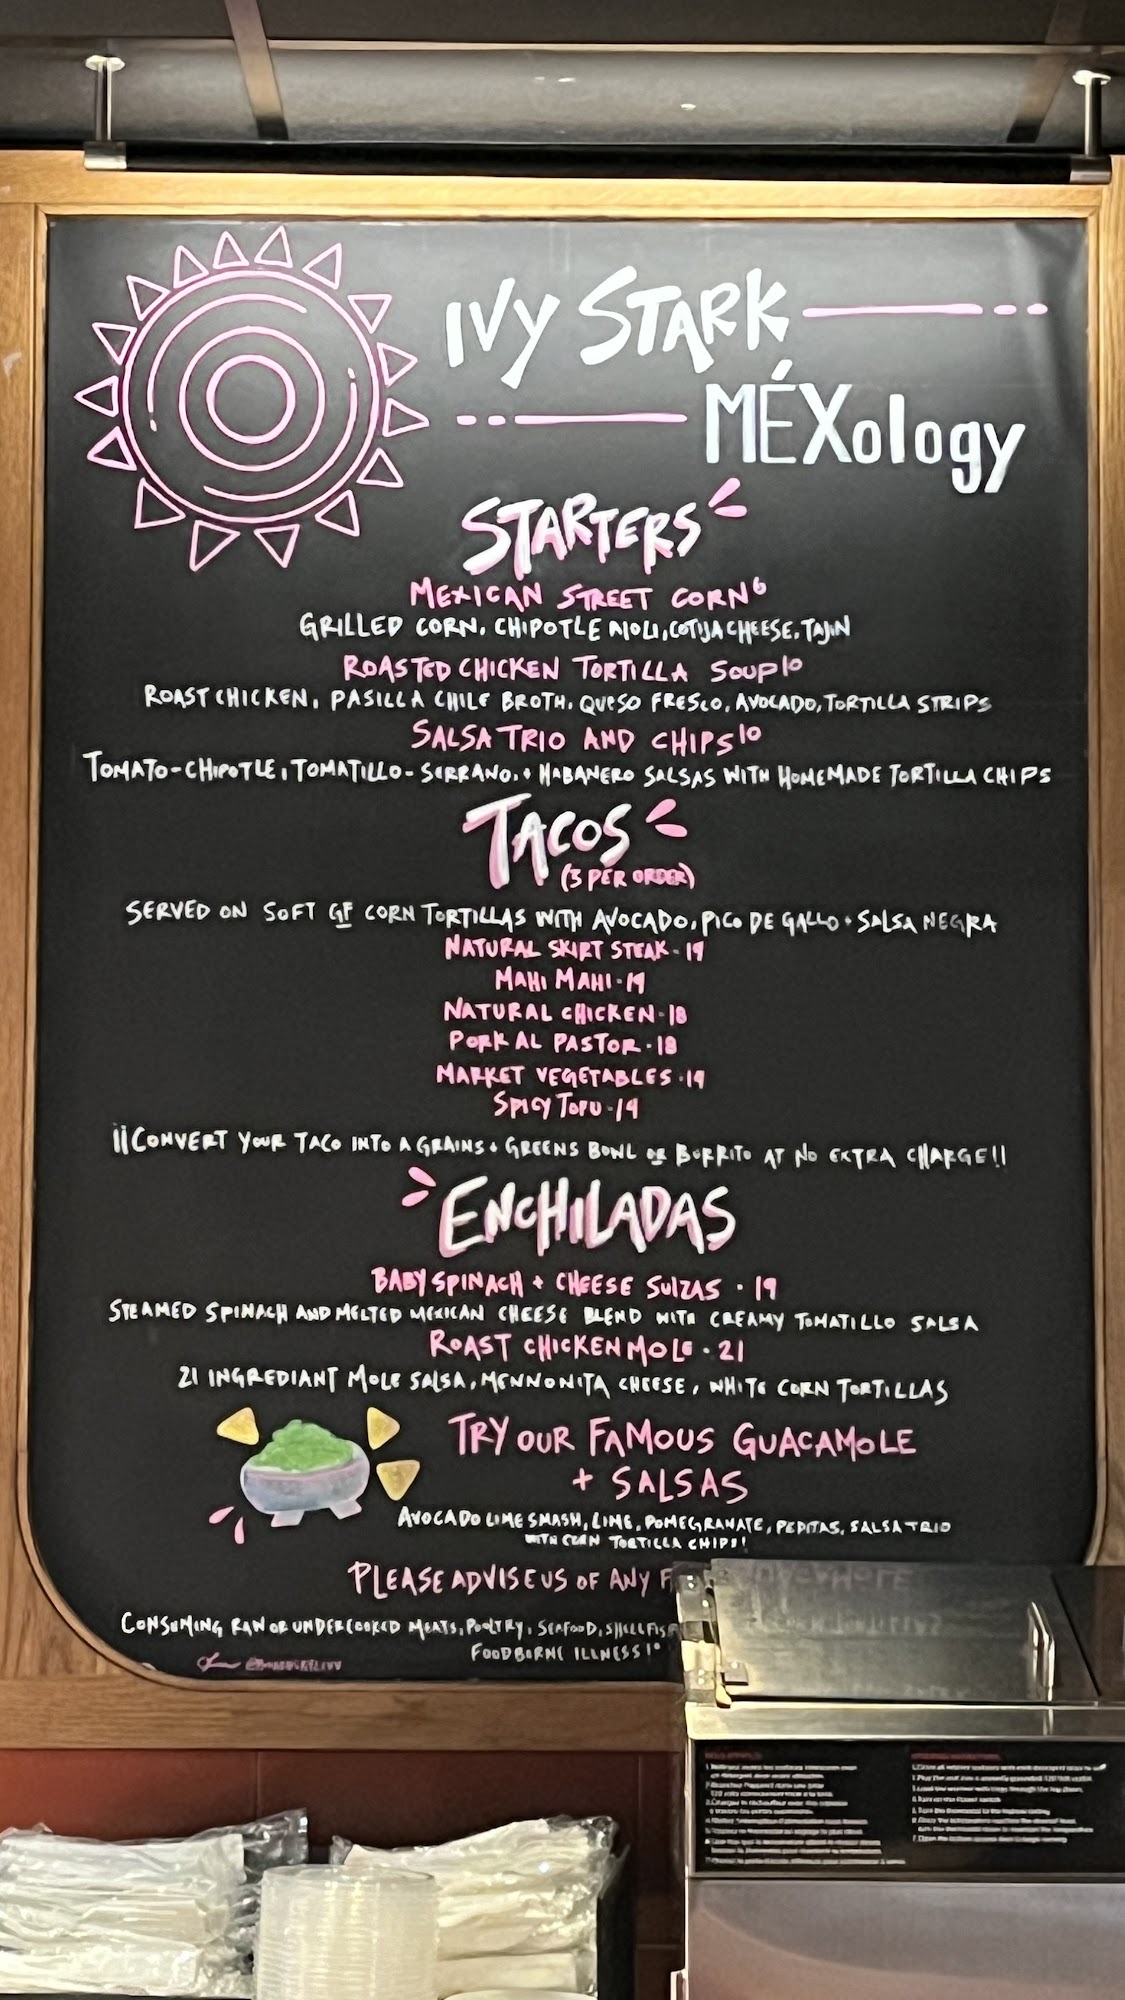 IVY STARK
MÉXology
STARTERS
MEXICAN STREET CORN 6
GRILLED CORN, CHIPOTLE AIOLI, COTIJA CHEESE, TAJIN
ROASTED CHICKEN TORTILLA SOUP 10
ROAST CHICKEN, PASILLA CHILE BROTH, QUESO FRESCO, AVOCADO, TORTILLA STRIPS
SALSA TRIO AND CHIPS 10
TOMATO-CHIPOTLE, TOMATILLO-SERRANO, + HABANERO SALSAS WITH HOMEMADE TORTILLA CHIPS
TACOS
(3 PER ORDER)
SERVED ON SOFT GF CORN TORTILLAS WITH AVOCADO, PICO DE GALLO + SALSA NEGRA
NATURAL SKIRT STEAK · 19
MAHI MAHI · 19
NATURAL CHICKEN · 18
PORK AL PASTOR · 18
MARKET VEGETABLES · 19
SPICY TOFU · 19
¡¡CONVERT YOUR TACO INTO A GRAINS + GREENS BOWL OR BURRITO AT NO EXTRA CHARGE!!
ENCHILADAS
BABY SPINACH + CHEESE SUIZAS · 19
STEAMED SPINACH AND MELTED MEXICAN CHEESE BLEND WITH CREAMY TOMATILLO SALSA
ROAST CHICKEN MOLE · 21
21 INGREDIANT MOLE SALSA, MENNONITA CHEESE, WHITE CORN TORTILLAS
TRY OUR FAMOUS GUACAMOLE
+ SALSAS
AVOCADO LIME SMASH, LIME, POMEGRANATE, PEPITAS, SALSA TRIO
WITH CORN TORTILLA CHIPS!
PLEASE ADVISE US OF ANY
CONSUMING RAW OR UNDERCOOKED MEATS, POULTRY, SEAFOOD,
FOODBORNE ILLNESS!